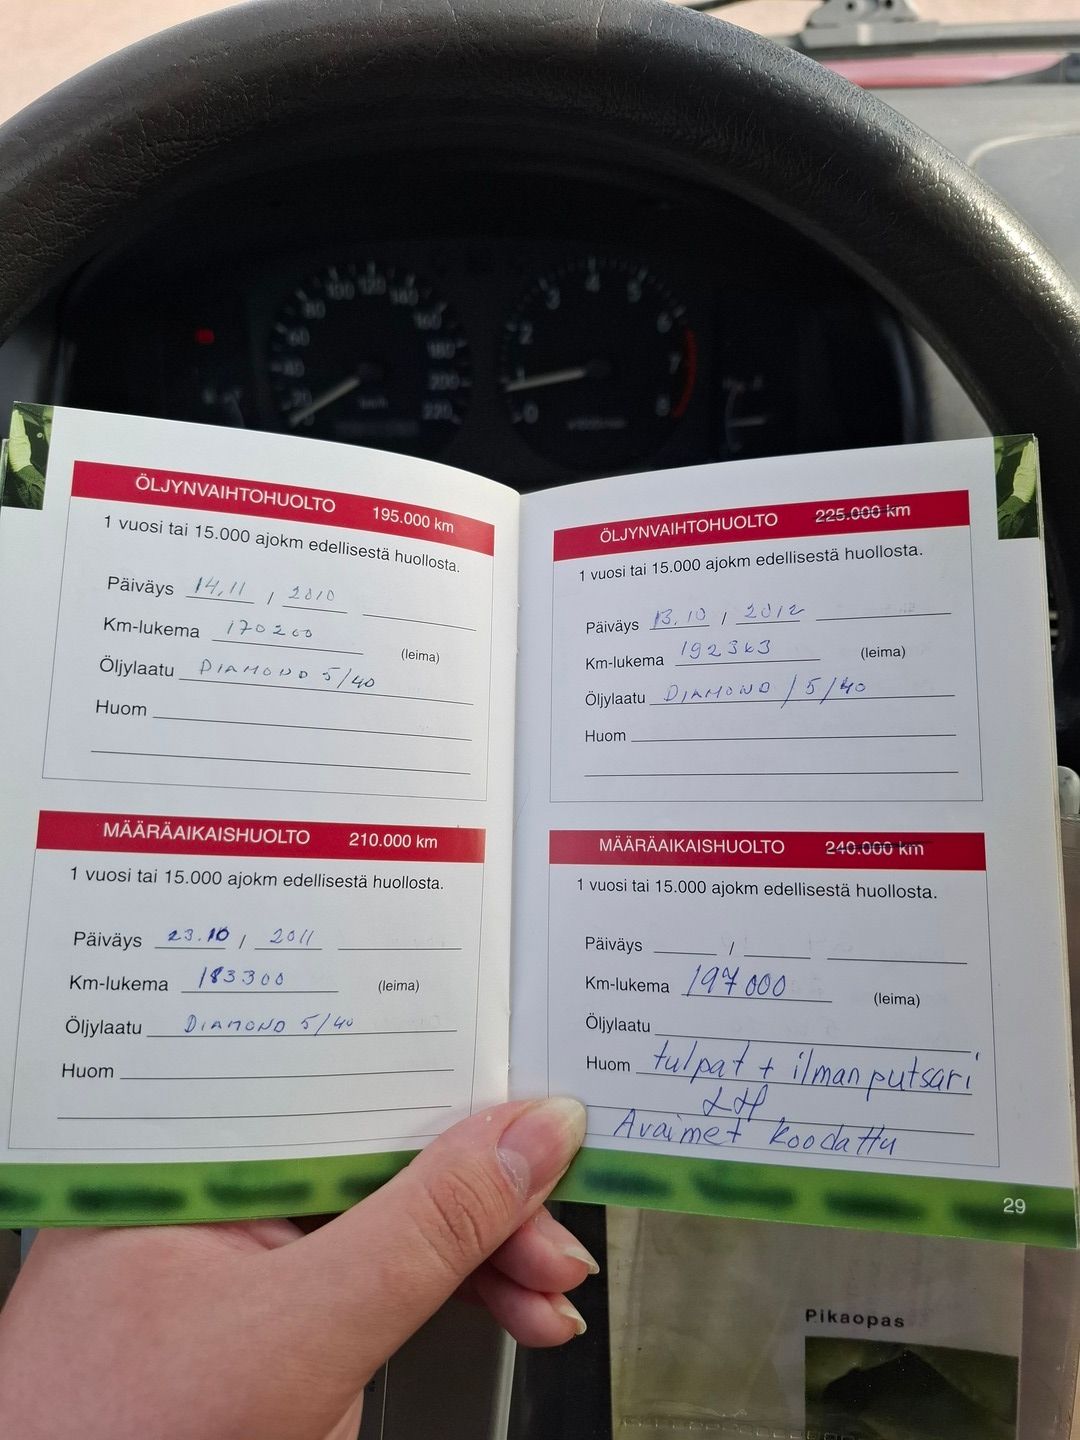 20
40
60
80
100
120
140
160
180
200
220
km/h
0
1
2
3
4
5
6
7
8
ÖLJYNVAIHTOHUOLTO 195.000 km
1 vuosi tai 15.000 ajokm edellisestä huollosta.
Päiväys 14.11 / 2010
Km-lukema 170200
(leima)
Öljylaatu DIAMOND 5/40
Huom
MÄÄRÄAIKAISHUOLTO 210.000 km
1 vuosi tai 15.000 ajokm edellisestä huollosta.
Päiväys 23.10 / 2011
Km-lukema 183300
(leima)
Öljylaatu DIAMOND 5/40
Huom
ÖLJYNVAIHTOHUOLTO 225.000 km
1 vuosi tai 15.000 ajokm edellisestä huollosta.
Päiväys 13.10 / 2012
Km-lukema
(leima)
Öljylaatu DIAMOND / 5/40
Huom
MÄÄRÄAIKAISHUOLTO 240.000 km
1 vuosi tai 15.000 ajokm edellisestä huollosta.
Päiväys /
Km-lukema 197000
(leima)
Öljylaatu
Huom tulpat + ilmanputsari
Avaimet koodattu
29
Pikaopas